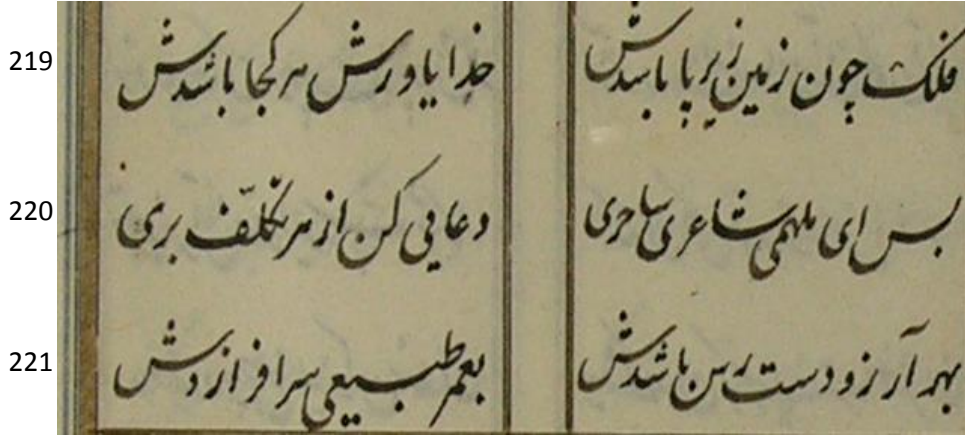 219 فلک چون زمین زیر پا باشدش خدا یاورش هر کجا باشدش
220 بس ای ملهمی شاعری ساحری دعایی کن از هر تکلّف بری
221 بهر آرزو دست رس باشدش بعمر طبیعی سرافرازدش